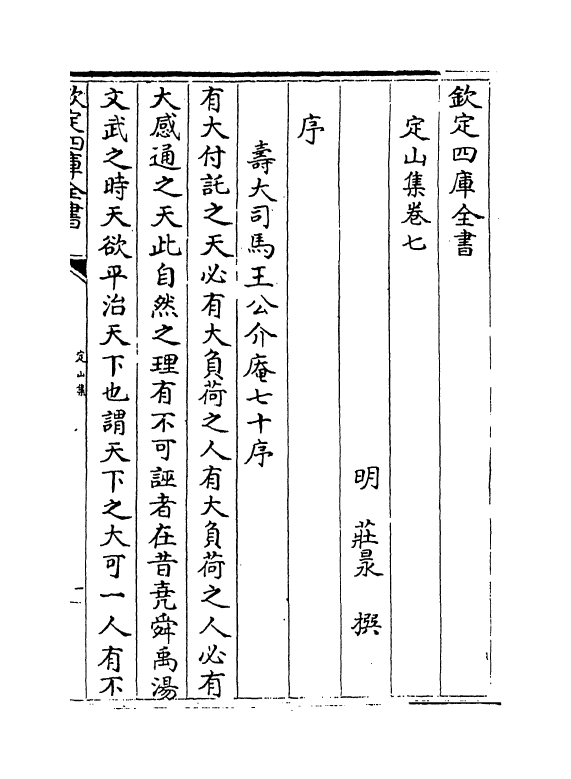 欽定四庫全書
定山集卷七
明 莊㫤 撰
序
壽大司馬王公介庵七十序
有大付託之天必有大負荷之人有大負荷之人必有
大感通之天此自然之理有不可誣者在昔堯舜禹湯
文武之時天欲平治天下也謂天下之大可一人有不
欽定四庫全書
定山集
一